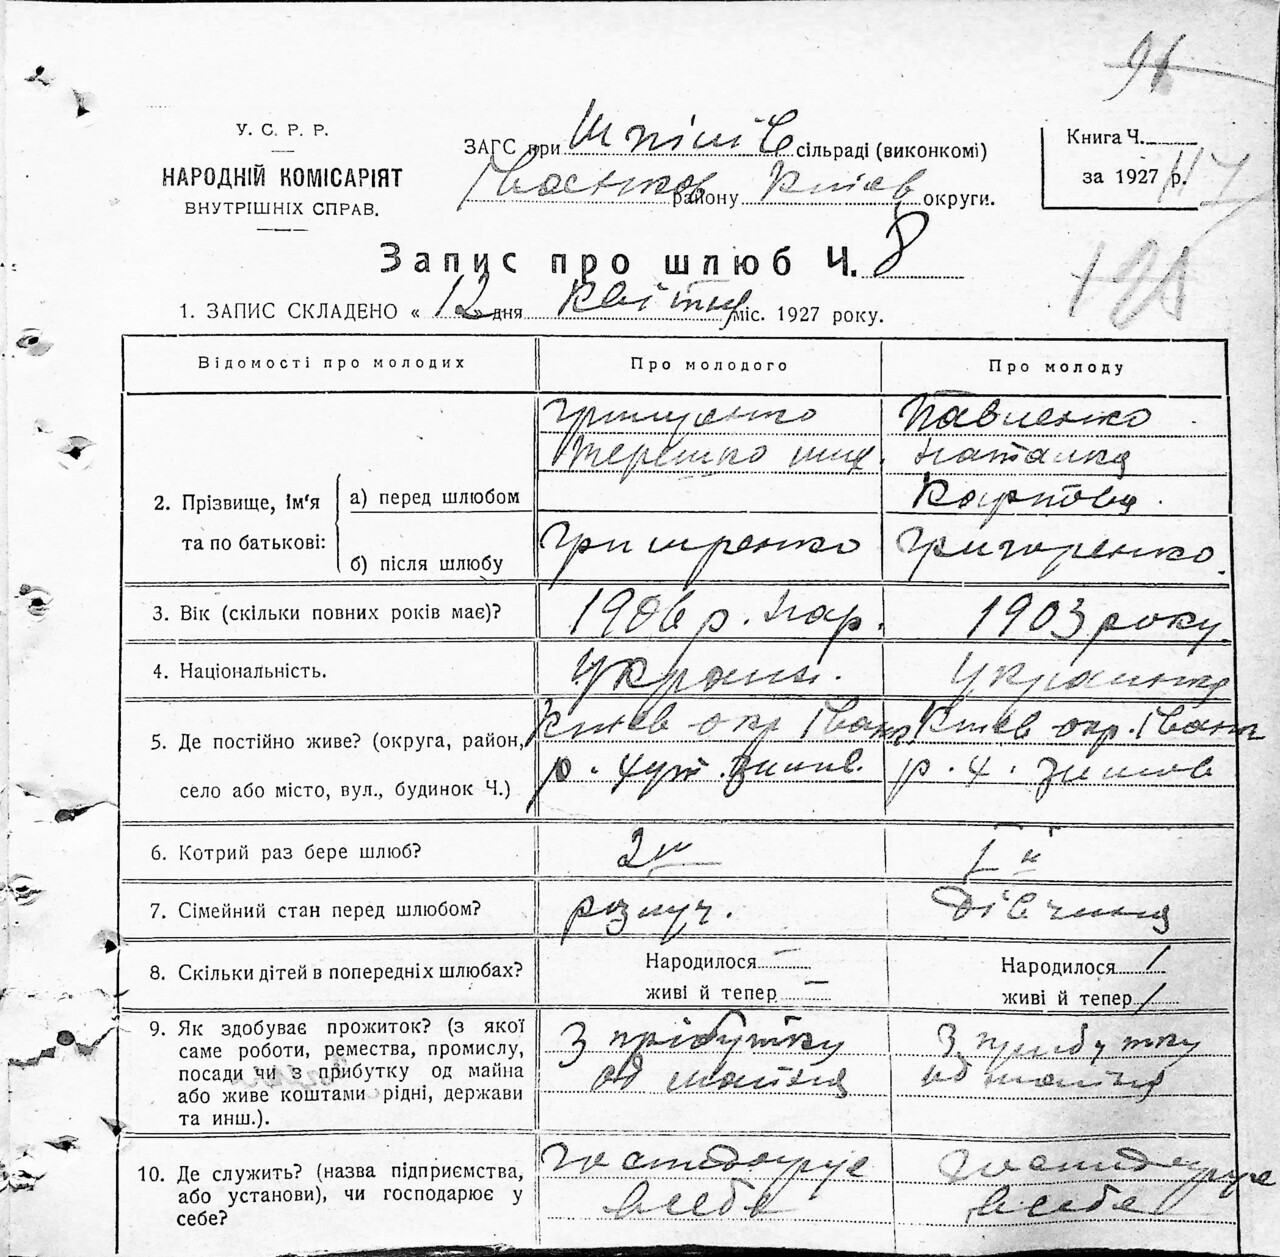 96
У. С. Р. Р.
НАРОДНІЙ КОМІСАРІЯТ
ВНУТРІШНІХ СПРАВ.
ЗАГС при Шпілів сільраді (виконкомі)
Іванков району Київ округи.
Книга Ч.
за 1927 р.
117
Запис про шлюб Ч. 8
1. ЗАПИС СКЛАДЕНО « 12 » дня Квітня міс. 1927 року.
Відомості про молодих Про молодого Про молоду
2. Прізвище, Ім'я та по батькові:
а) перед шлюбом
Терешко
Павленко
Наталка
Карпова.
б) після шлюбу
Григоренко.
3. Вік (скільки повних років має)? 1906 р. нар. 1903 року.
4. Національність. Україн. Українка
5. Де постійно живе? (округа, район, село або місто, вул., будинок Ч.)
Київ окр Іванк
р. хут.
Київ окр. Іванк
р. х.
6. Котрий раз бере шлюб? 2й Iй
7. Сімейний стан перед шлюбом? розлуч. Дівчина
8. Скільки дітей в попередніх шлюбах? Народилося – Народилося /
живі й тепер – живі й тепер /
9. Як здобуває прожиток? (з якої
саме роботи, ремества, промислу,
посади чи з прибутку од майна
або живе коштами рідні, держави
та инш.).
З прібутку
од майна
З прибутку
од майна
10. Де служить? (назва підприємства,
або установи), чи господарює у
себе?
господарує
в себе
господарує
в себе